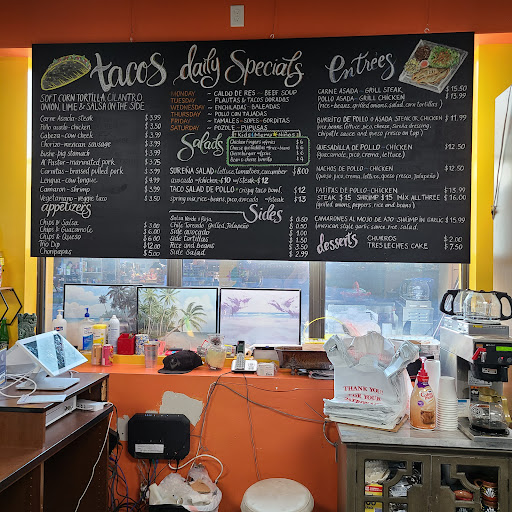 tacos
SOFT CORN TORTILLA, CILANTRO
ONION, LIME & SALSA ON THE SIDE
Carne Asada - steak $ 3.99
Pollo asado - chicken $ 3.50
Cabeza - cow cheek $ 3.99
Chorizo - mexican sausage $ 3.99
Buche - pig stomach $ 3.99
Al Pastor - marinated pork $ 3.75
Carnitas - braised pulled pork $ 3.99
Lengua - cow tongue $ 4.99
Camaron - shrimp $ 3.99
Vegetariano - veggie taco $ 3.50
appetizers
Chips & Salsa $ 3.00
Chips & Guacamole $
Chips & Queso $ 6.00
Trio Dip $ 12.00
Choripapas $ 5.00
daily Specials
MONDAY - CALDO DE RES - BEEF SOUP
TUESDAY - FLAUTAS & TACOS DORADAS
WEDNESDAY - ENCHILADAS - BALEADAS
THURSDAY - POLLO CON TAJADAS
FRIDAY - TAMALES - SOPES - GORDITAS
SATURDAY - POZOLE - PUPUSAS
Salads
Kids Menu Niños
$ 6
$ 6
$ 6
$ 4
SUREÑA SALAD: lettuce, tomatoes, cucumber $ 8.00
avocado + chicken $10 w/steak $12
TACO SALAD DE POLLO - crispy taco bowl, $12
spring mix, rice - beans, pico, avocado + steak $13
Sides
Salsa Verde o Roja $ 0.50
Chile Toreado - Grilled Jalapeño $ 0.50
Side avocado $ 1.00
Side tortillas $ 1.50
Rice and beans $ 3.50
Side Salad $ 2.99
Entrées
CARNE ASADA - GRILL STEAK, $ 15.50
POLLO ASADA - GRILL CHICKEN $ 13.99
(rice - beans, grilled onions, salad, corn tortillas)
BURRITO DE POLLO O ASADA STEAK OR CHICKEN, $ 11.99
QUESADILLA DE POLLO - CHICKEN $12.50
(guacamole, pico, crema, lettuce)
NACHOS DE POLLO - CHICKEN $12.50
FAJITAS DE POLLO - CHICKEN $ 15.99
STEAK $15 SHRIMP $15 MIX ALL THREE $ 16.00
CAMARONES AL MOJO DE AJO - SHRIMP IN GARLIC $ 15.99
(mexican style, garlic sauce, rice, salad
desserts
CHURROS $ 2.00
TRES LECHES CAKE $ 7.50
THANK YOU